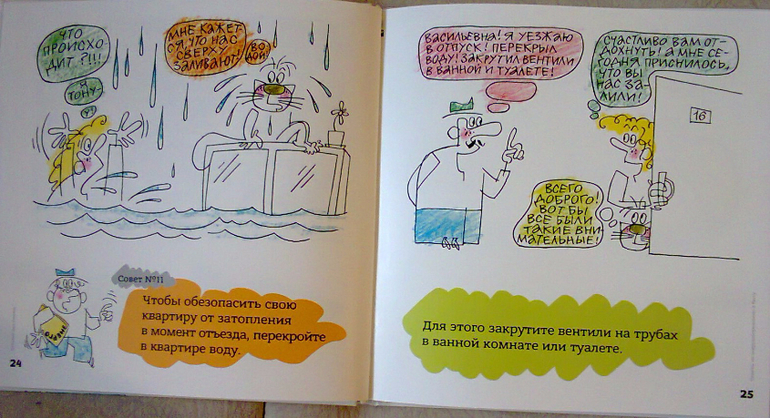 ЧТО
ПРОИСХО
ДИТ?!!!
Я
ТОНУ-
У!
МНЕ КАЖЕТ
СЯ, ЧТО НАС
СВЕРХУ
ЗАЛИВАЮТ
ВО
ДОЙ!
Совет №11
Чтобы обезопасить свою
квартиру от затопления
в момент отъезда, перекройте
в квартире воду.
24
ВАСИЛЬЕВНА! Я УЕЗЖАЮ
В ОТПУСК! ПЕРЕКРЫЛ
ВОДУ! ЗАКРУТИЛ ВЕНТИЛИ
В ВАННОЙ И ТУАЛЕТЕ!
СЧАСТЛИВО ВАМ ОТ-
ДОХНУТЬ! А МНЕ СЕ-
ГОДНЯ ПРИСНИЛОСЬ,
ЧТО ВЫ
НАС ЗА-
ЛИЛИ!
16
ВСЕГО
ДОБРОГО!
ВОТ БЫ
ВСЕ БЫЛИ
ТАКИЕ ВНИ
МАТЕЛЬНЫЕ!
Для этого закрутите вентили на трубах
в ванной комнате или туалете.
25